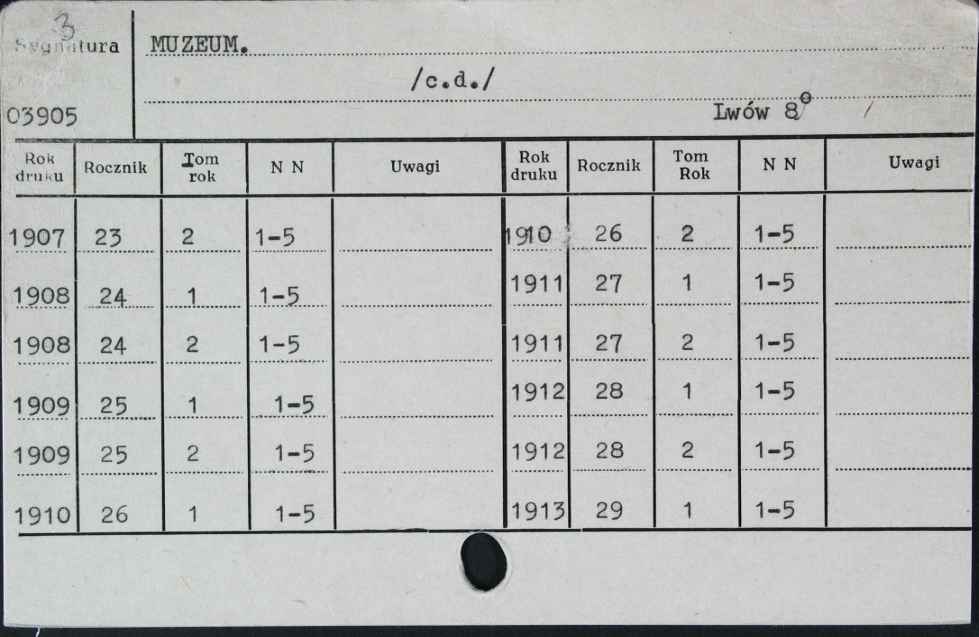 3
Sygnatura
MUZEUM.
/c.d./
03905
Lwów 8°
Rok druku Rocznik Tom rok N N Uwagi Rok druku Rocznik Tom Rok N N Uwagi
1907 23 2 1-5 1910 26 2 1-5
1908 24 1 1-5 1911 27 1 1-5
1908 24 2 1-5 1911 27 2 1-5
1909 25 1 1-5 1912 28 1 1-5
1909 25 2 1-5 1912 28 2 1-5
1910 26 1 1-5 1913 29 1 1-5